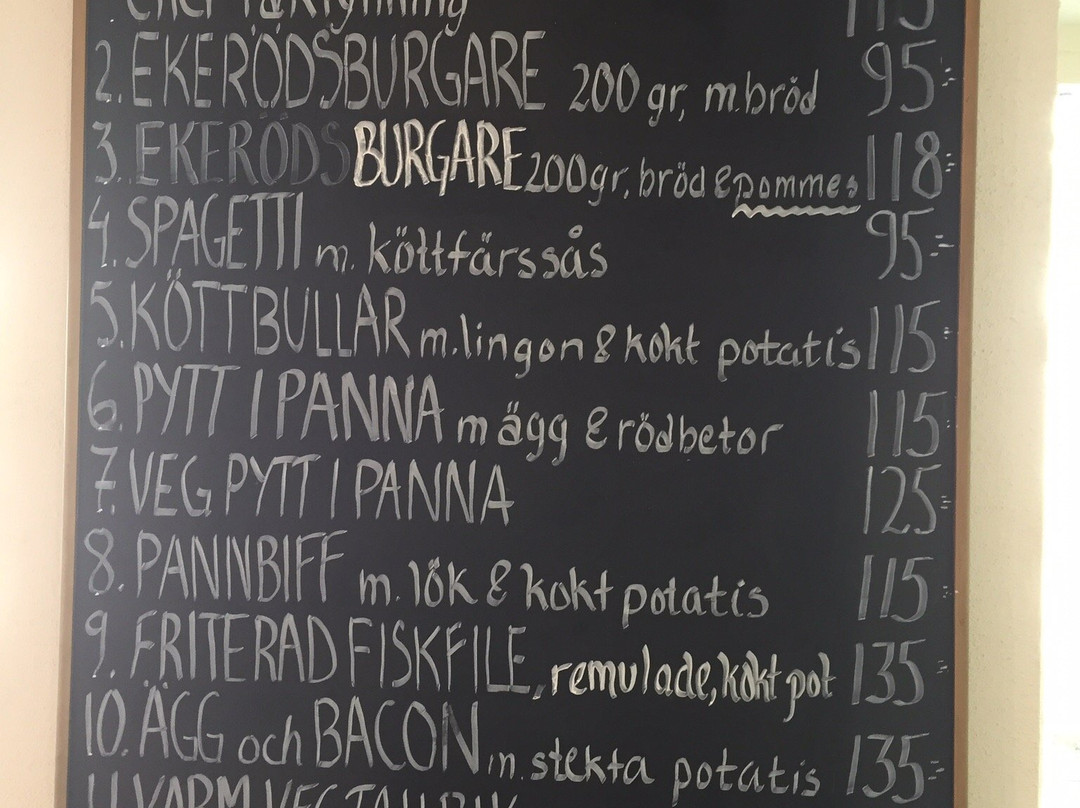 115
2. EKERÖDSBURGARE 200 gr, m.bröd 95:-
3. EKERÖDSBURGARE 200gr, bröd & pommes 118:-
4. SPAGETTI m. köttfärssås 95:-
5. KÖTTBULLAR m. lingon & kokt potatis 115:-
6. PYTT I PANNA m ägg & rödbetor 115:-
7. VEG PYTT I PANNA 125:-
8. PANNBIFF m. lök & kokt potatis 115:-
9. FRITERAD FISKFILE, remulade, kokt pot 135:-
10. ÄGG och BACON m. stekta potatis 135:-
11. VARM VEG